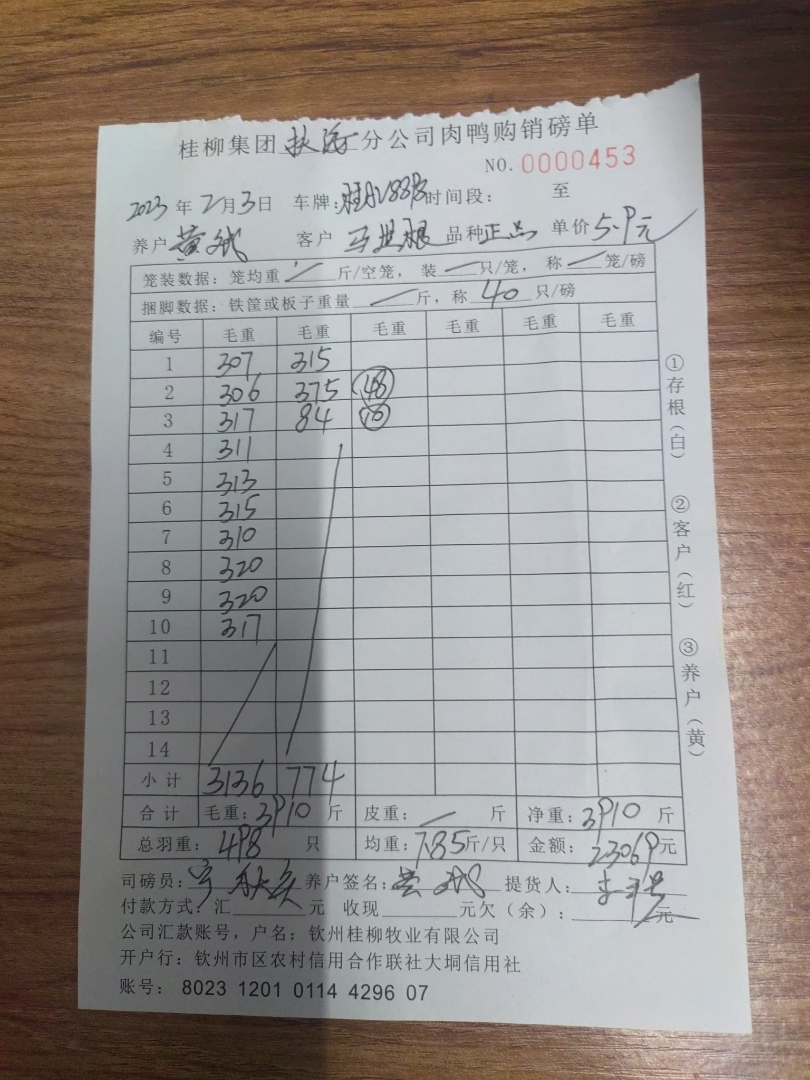 桂柳集团 分公司肉鸭购销磅单
NO. 0000453
2023年2月3日 车牌: 时间段: 至
养户 黄 客户 马 根 品种 正品 单价 5.9元
笼装数据: 笼均重 / 斤/空笼, 装 一 只/笼, 称 一 笼/磅
捆脚数据: 铁筐或板子重量 一 斤, 称 40 只/磅
编号 毛重 毛重 毛重 毛重 毛重 毛重
1 307 315
2 306 375 48
3 317 84 10
4 311
5 313
6 315
7 310
8 320
9 320
10 317
11
12
13
14
小计 3136 774
合计 毛重: 3910 斤 皮重: 一 斤 净重: 3910 斤
总羽重: 498 只 均重: 7.85斤/只 金额: 23069元
司磅员: 养户签名: 提货人:
付款方式: 汇 元 收现 元欠(余): 元
公司汇款账号, 户名: 钦州桂柳牧业有限公司
开户行: 钦州市区农村信用合作联社大垌信用社
账号: 8023 1201 0114 4296 07
①存根(白) ②客户(红) ③养户(黄)